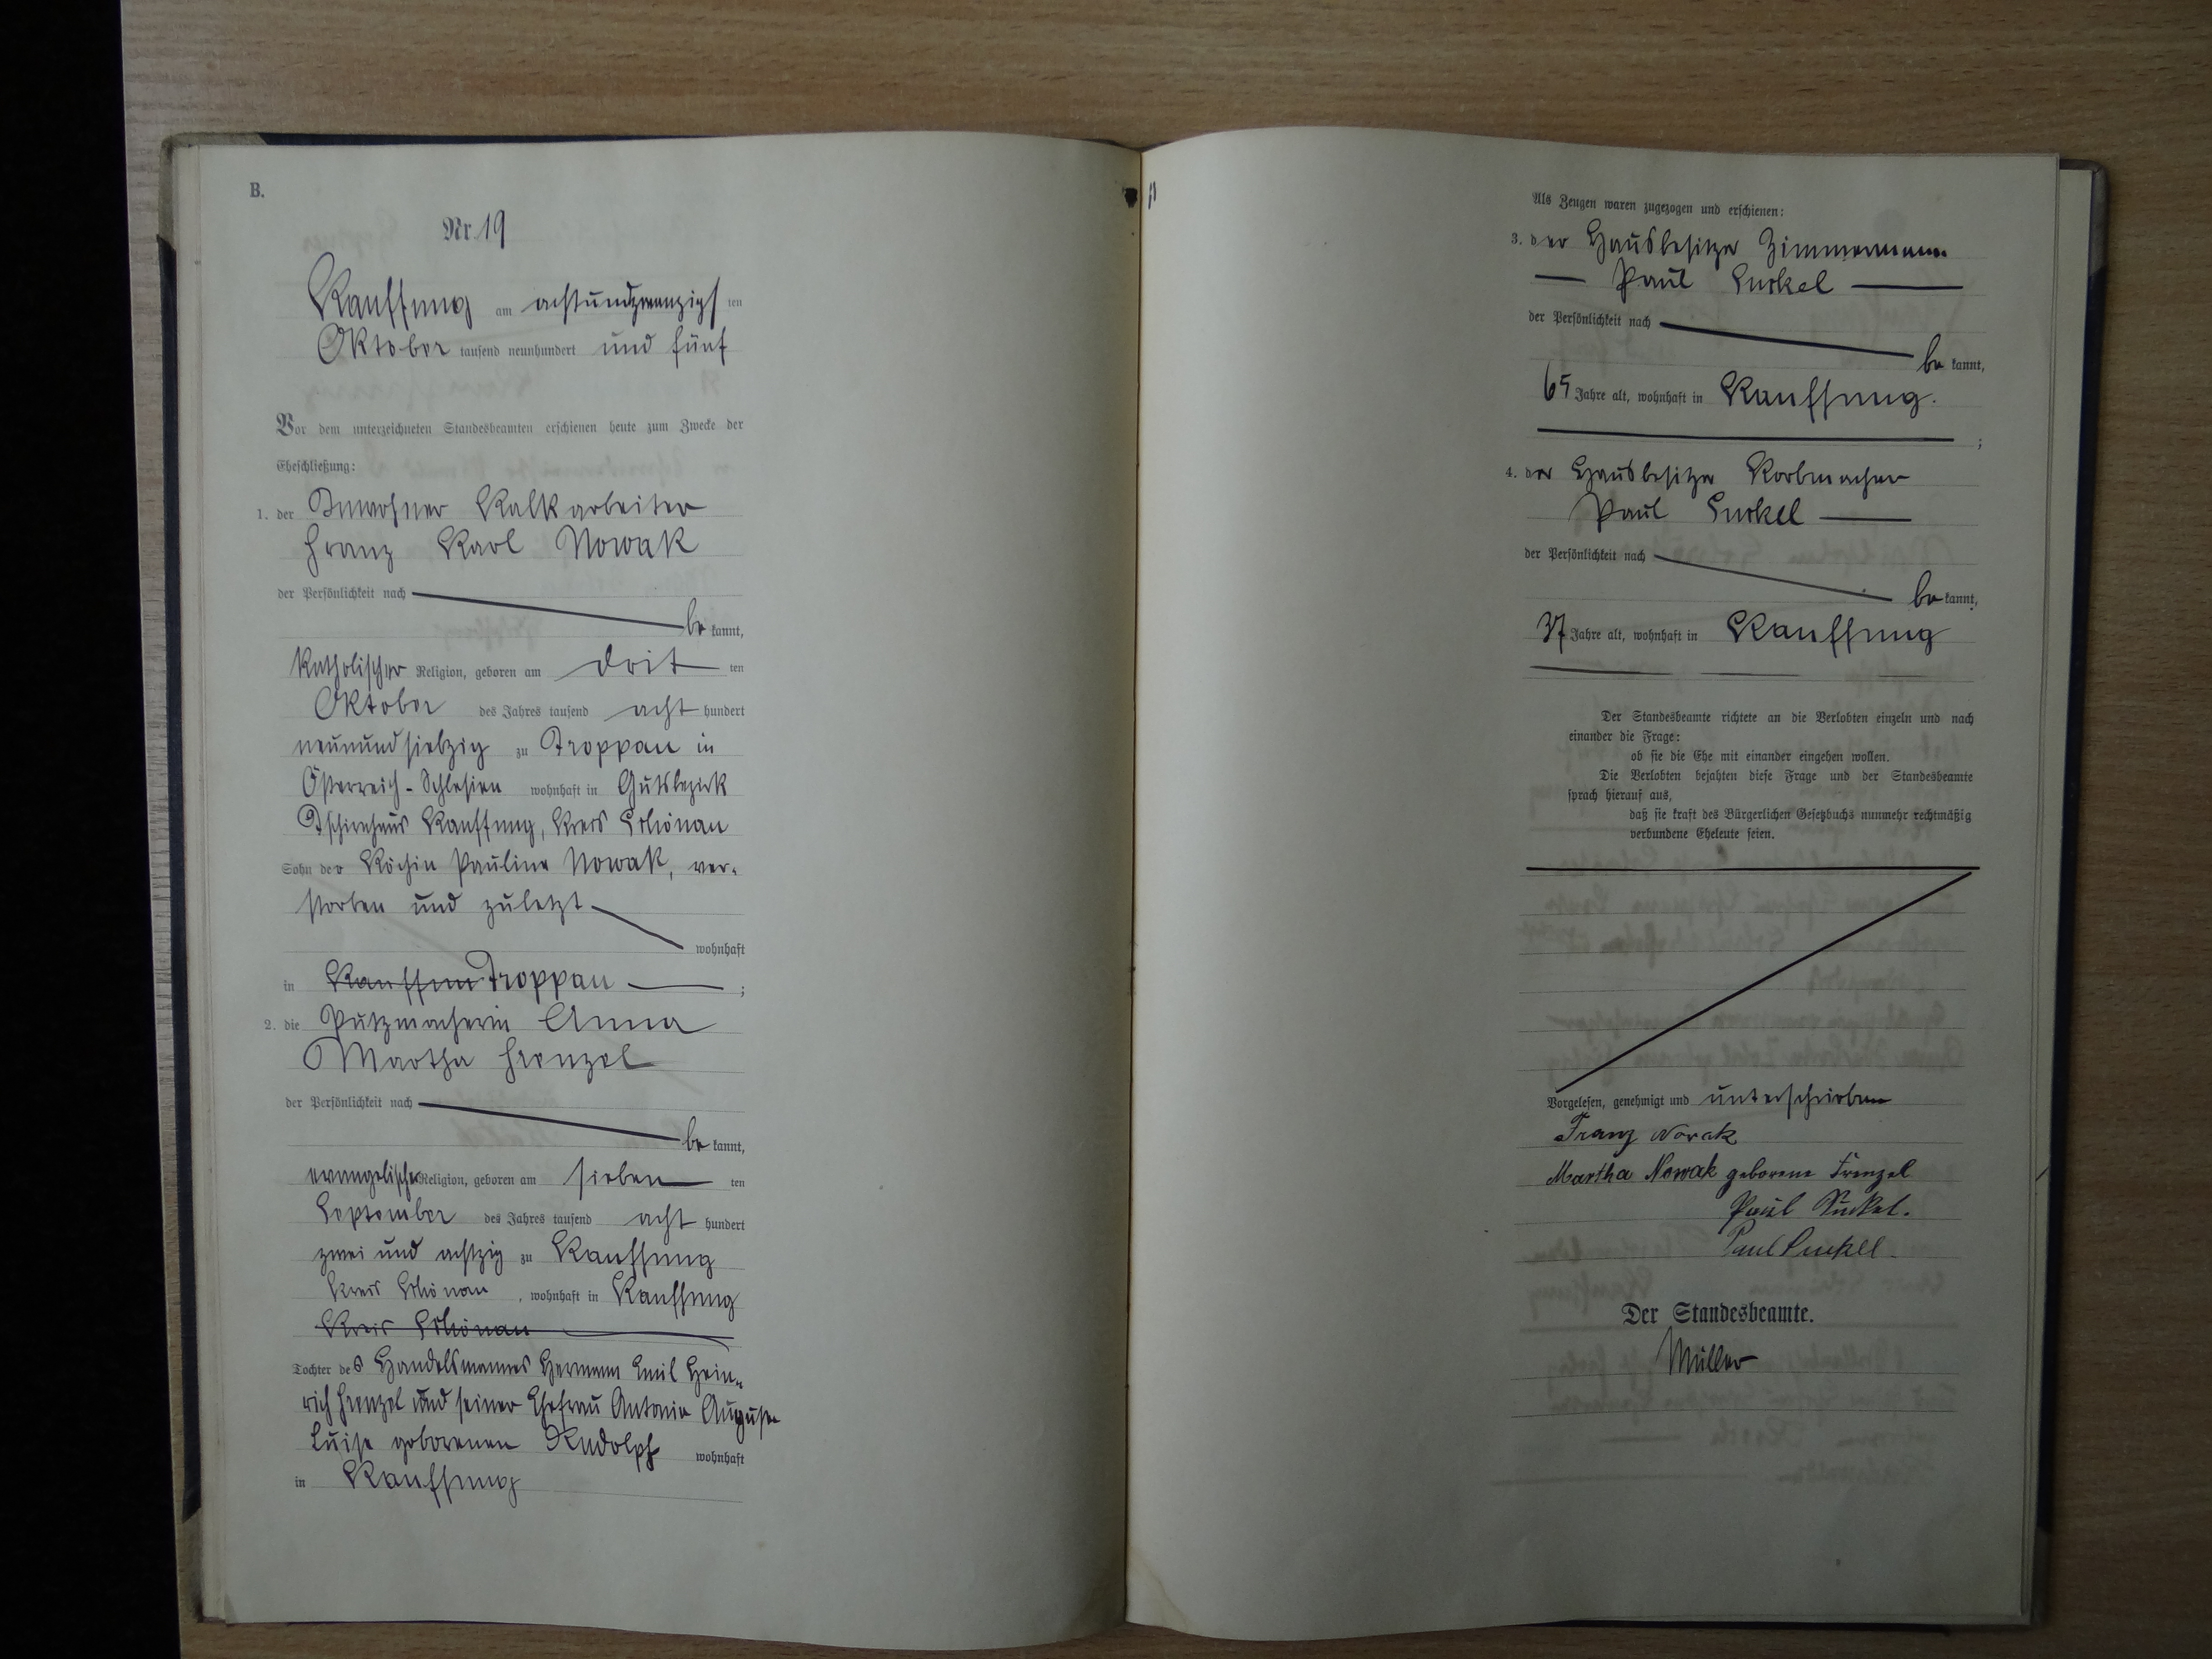 B.
Nr. 19
Kauffung am achtundzwanzigs ten
Oktober tausend neunhundert und fünf
Vor dem unterzeichneten Standesbeamten erschienen heute zum Zwecke der
Eheschließung:
1. der Inwohner Kalkarbeiter
Franz Karl Nowak
der Persönlichkeit nach
be kannt,
katholischer Religion, geboren am drit ten
Oktober des Jahres tausend acht hundert
neunundsiebzig zu Troppau in
Österreich-Schlesien wohnhaft in Gutsbezirk
Tschirnhaus Kauffung, Kreis Schönau
Sohn der Köchin Pauline Nowak, ver-
storben und zuletzt
wohnhaft
in Kauffun Troppau ;
2. die Putzmacherin Anna
Martha Frenzel
der Persönlichkeit nach
be kannt,
evangelischer Religion, geboren am sieben ten
September des Jahres tausend acht hundert
zwei und achtzig zu Kauffung
Kreis Schönau, wohnhaft in Kauffung
Kreis Schönau
Tochter des Handelsmannes Hermann Emil Hein-
rich Frenzel und seiner Ehefrau Antonie Auguste
Luise geborenen Rudolph wohnhaft
in Kauffung
Als Zeugen waren zugezogen und erschienen:
3. der Hausbesitzer Zimmermann
Paul Suckel
der Persönlichkeit nach
be kannt,
65 Jahre alt, wohnhaft in Kauffung.
;
4. der Hausbesitzer Korbmacher
Paul Suckel
der Persönlichkeit nach
be kannt,
37 Jahre alt, wohnhaft in Kauffung
Der Standesbeamte richtete an die Verlobten einzeln und nach
einander die Frage:
ob sie die Ehe mit einander eingehen wollen.
Die Verlobten bejahten diese Frage und der Standesbeamte
sprach hierauf aus,
daß sie kraft des Bürgerlichen Gesetzbuchs nunmehr rechtmäßig
verbundene Eheleute seien.
Vorgelesen, genehmigt und unterschrieben
Franz Novak
Martha Nowak geborene Frenzel
Paul Suckel.
Paul Suckel
Der Standesbeamte.
Müller